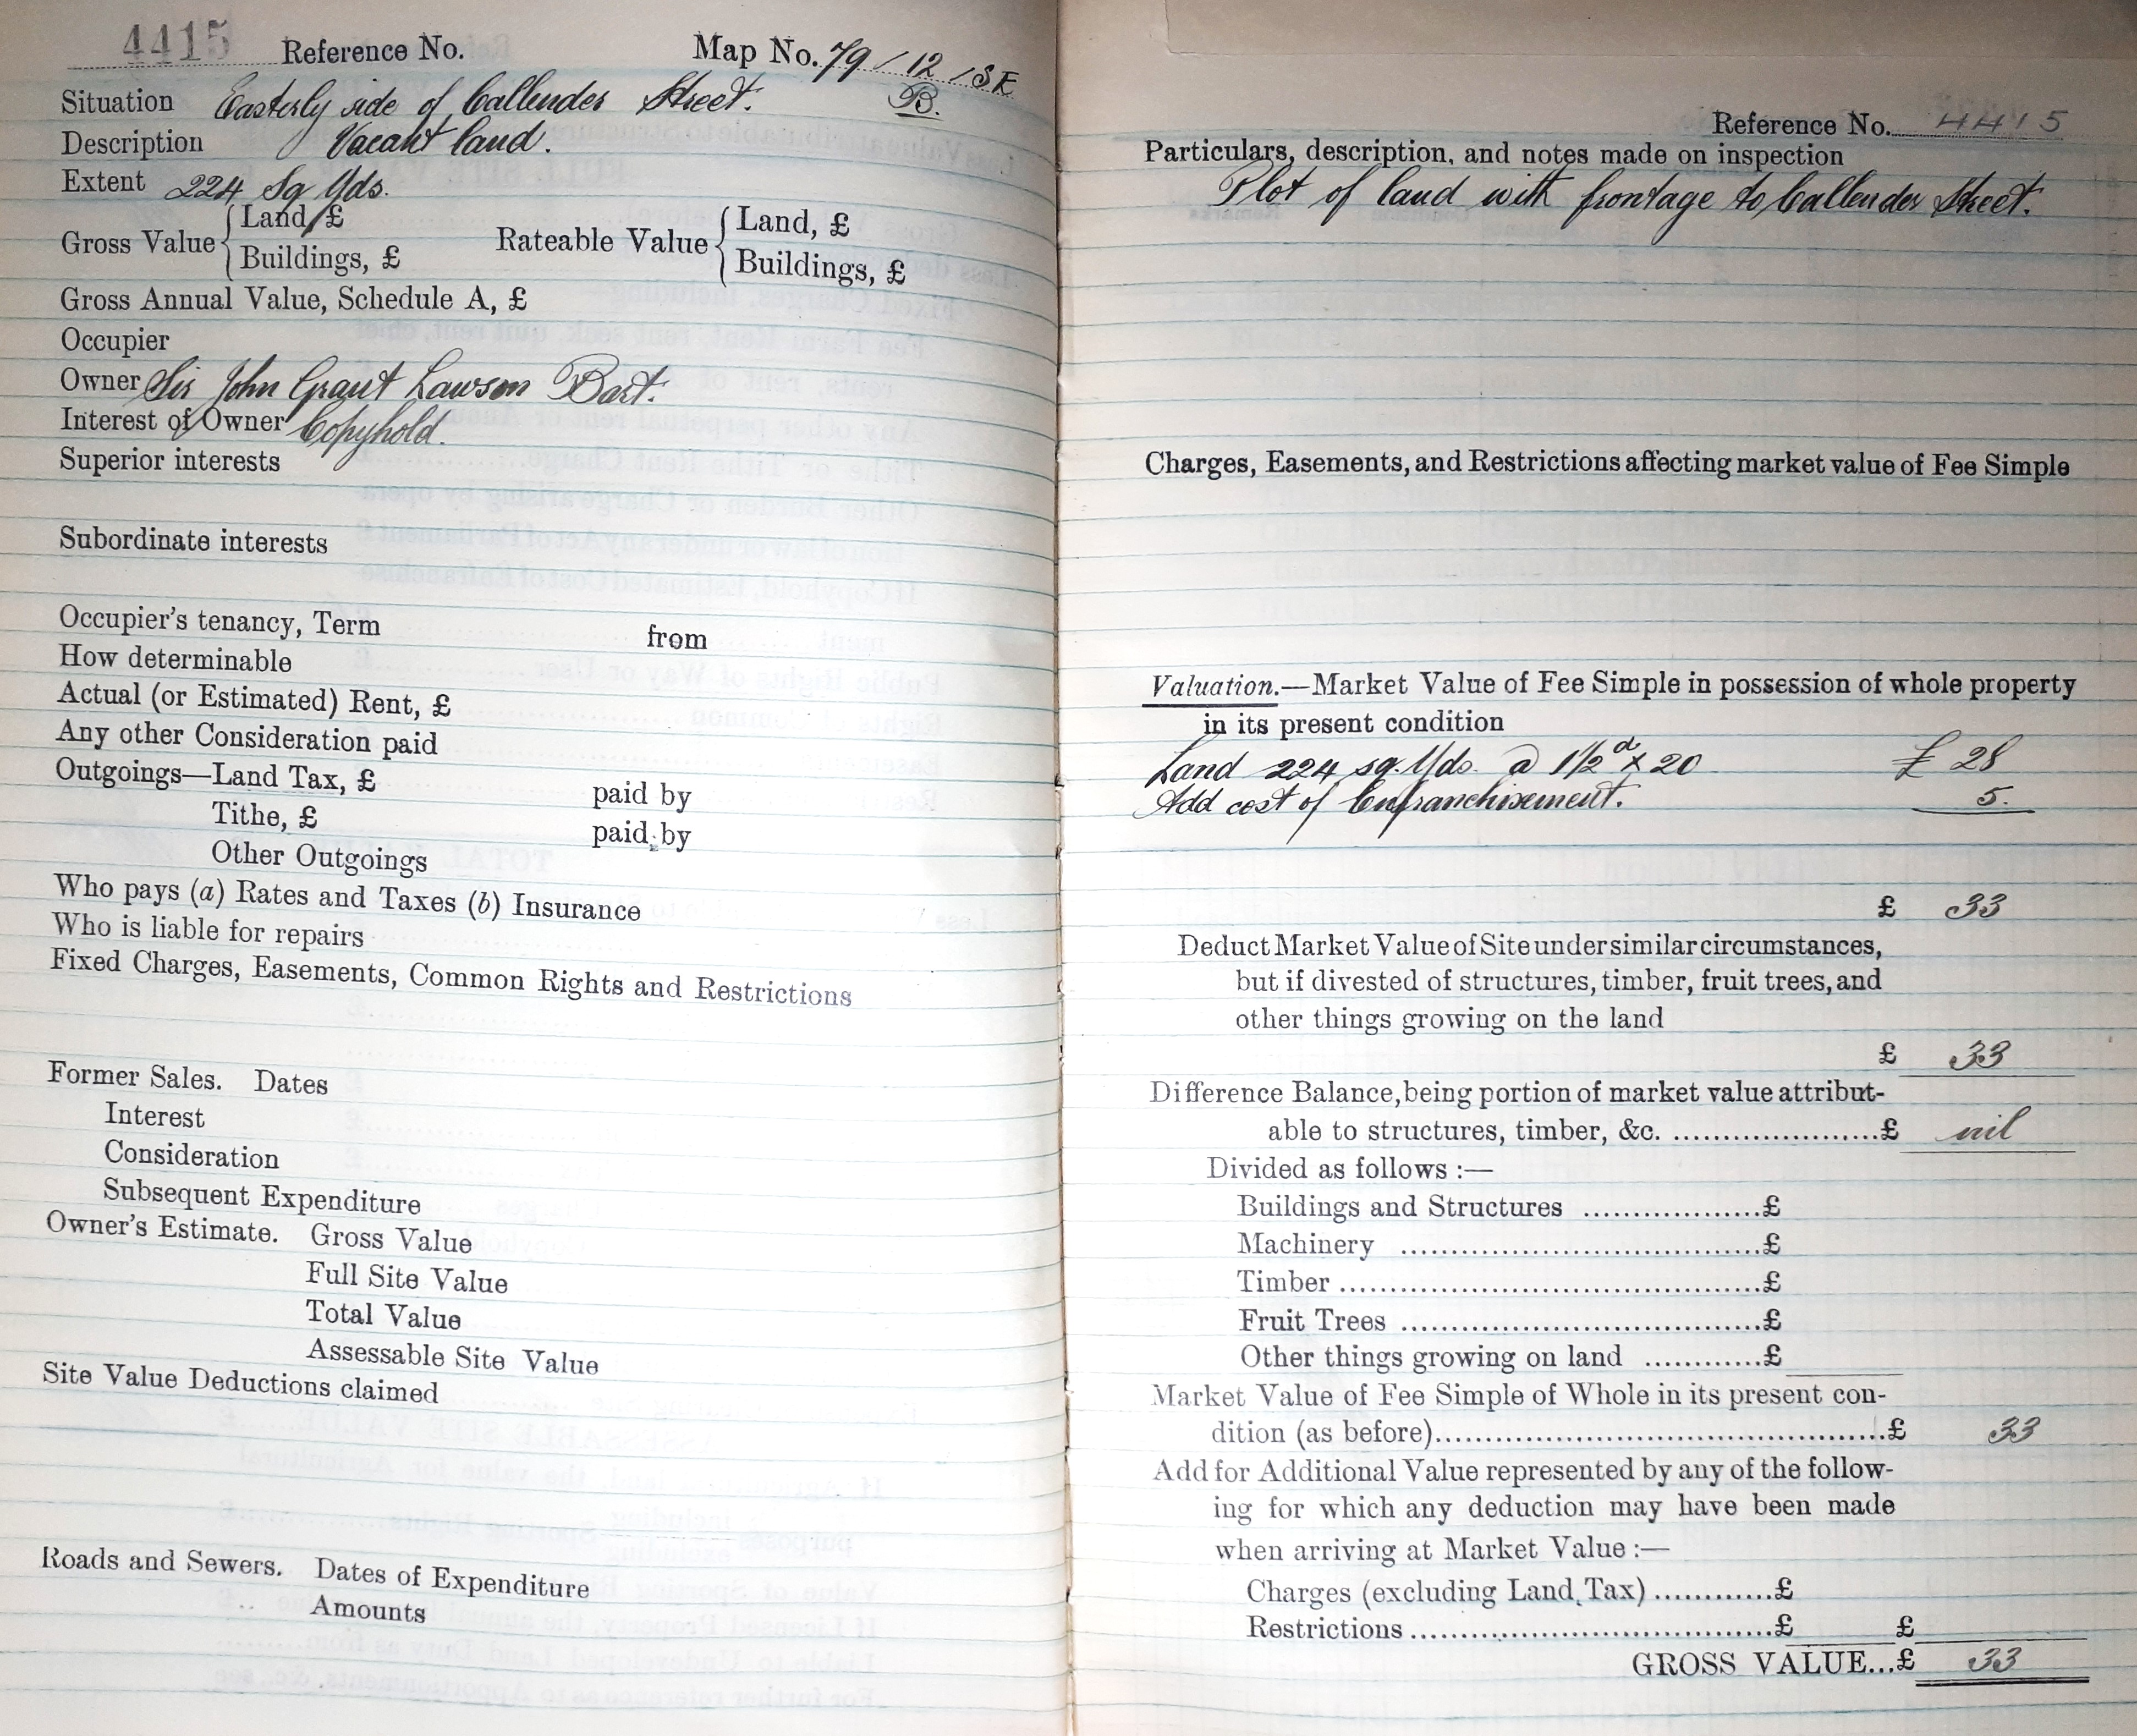 4415 Reference No. Map No. 79/12/SE
B.
Situation Easterly side of Callender Street.
Description Vacant land.
Extent 224 Sq Yds.
Gross Value { Land, £ Rateable Value { Land, £
Buildings, £ Buildings, £
Gross Annual Value, Schedule A, £
Occupier
Owner Sir John Grant Lawson Bart.
Interest of Owner Copyhold.
Superior interests
Subordinate interests
Occupier's tenancy, Term from
How determinable
Actual (or Estimated) Rent, £
Any other Consideration paid
Outgoings—Land Tax, £ paid by
Tithe, £ paid by
Other Outgoings
Who pays (a) Rates and Taxes (b) Insurance
Who is liable for repairs
Fixed Charges, Easements, Common Rights and Restrictions
Former Sales. Dates
Interest
Consideration
Subsequent Expenditure
Owner's Estimate. Gross Value
Full Site Value
Total Value
Assessable Site Value
Site Value Deductions claimed
Roads and Sewers. Dates of Expenditure
Amounts
Reference No. 4415
Particulars, description, and notes made on inspection
Plot of land with frontage to Callender Street.
Charges, Easements, and Restrictions affecting market value of Fee Simple
Valuation.—Market Value of Fee Simple in possession of whole property
in its present condition
Land 224 sq. Yds. @ 1½d x 20 £ 28
Add cost of Enfranchisement. 5.
£ 33
Deduct Market Value of Site under similar circumstances,
but if divested of structures, timber, fruit trees, and
other things growing on the land
£ 33
Difference Balance, being portion of market value attribut-
able to structures, timber, &c. ......................£ nil
Divided as follows :—
Buildings and Structures ...................£
Machinery .......................................£
Timber .............................................£
Fruit Trees ......................................£
Other things growing on land ............£
Market Value of Fee Simple of Whole in its present con-
dition (as before)................................................£ 33
Add for Additional Value represented by any of the follow-
ing for which any deduction may have been made
when arriving at Market Value :—
Charges (excluding Land Tax) ............£
Restrictions .......................................£ £
GROSS VALUE...£ 33